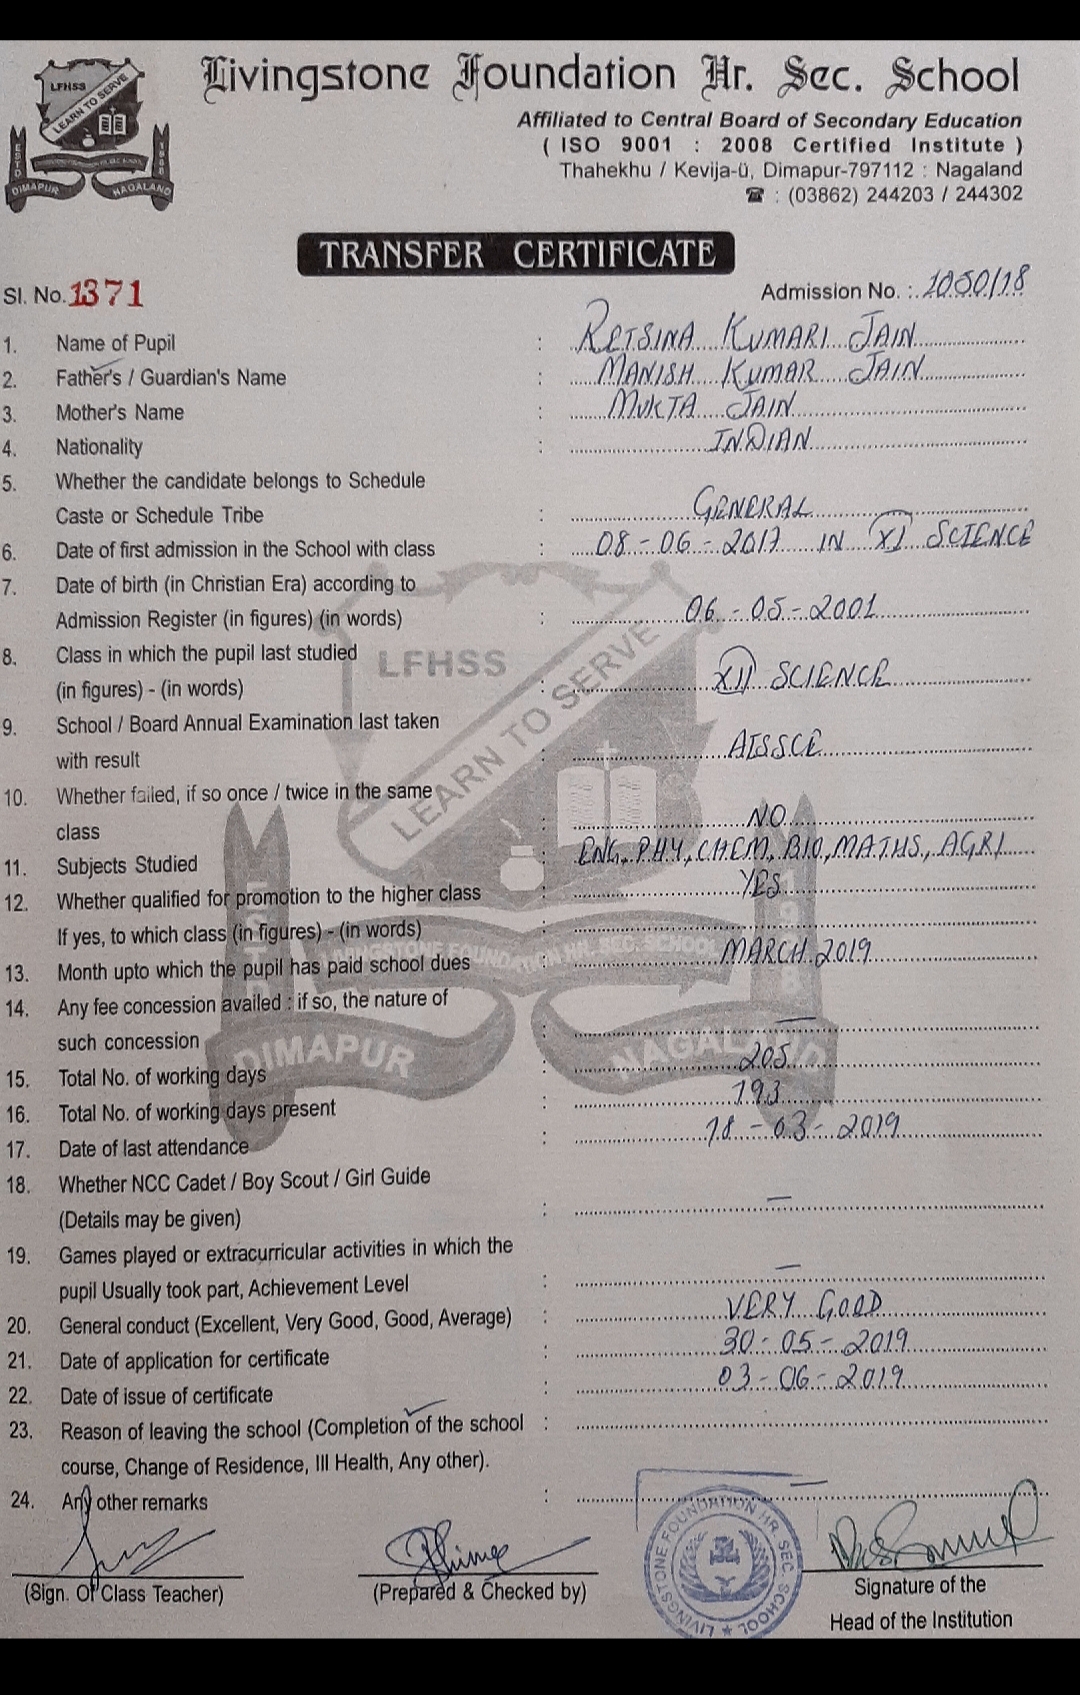 LFHSS
LEARN TO SERVE
ESTD
1988
DIMAPUR
NAGALAND
Livingstone Foundation Hr. Sec. School
Affiliated to Central Board of Secondary Education
( ISO 9001 : 2008 Certified Institute )
Thahekhu / Kevija-ü, Dimapur-797112 : Nagaland
☎ : (03862) 244203 / 244302
TRANSFER CERTIFICATE
Sl. No. 1371 Admission No. : 1050/18
1. Name of Pupil : RETSINA KUMARI JAIN
2. Father's / Guardian's Name : MANISH KUMAR JAIN
3. Mother's Name : MUKTA JAIN
4. Nationality : INDIAN
5. Whether the candidate belongs to Schedule
Caste or Schedule Tribe : GENERAL
6. Date of first admission in the School with class : 08-06-2017 IN XI SCIENCE
7. Date of birth (in Christian Era) according to
Admission Register (in figures) (in words) : 06-05-2001
8. Class in which the pupil last studied
(in figures) - (in words) : XII SCIENCE
9. School / Board Annual Examination last taken
with result : AISSCE
10. Whether failed, if so once / twice in the same
class : NO
11. Subjects Studied : ENG, PHY, CHEM, BIO, MATHS, AGRI
12. Whether qualified for promotion to the higher class : YES
If yes, to which class (in figures) - (in words)
13. Month upto which the pupil has paid school dues : MARCH 2019
14. Any fee concession availed : if so, the nature of
such concession : —
15. Total No. of working days : 205
16. Total No. of working days present : 193
17. Date of last attendance : 18-03-2019
18. Whether NCC Cadet / Boy Scout / Girl Guide
(Details may be given) : —
19. Games played or extracurricular activities in which the
pupil Usually took part, Achievement Level : —
20. General conduct (Excellent, Very Good, Good, Average) : VERY GOOD
21. Date of application for certificate : 30-05-2019
22. Date of issue of certificate : 03-06-2019
23. Reason of leaving the school (Completion of the school :
course, Change of Residence, Ill Health, Any other).
24. Any other remarks : —
(Sign. Of Class Teacher) (Prepared & Checked by) Signature of the
Head of the Institution
LFHSS
LEARN TO SERVE
LIVINGSTONE FOUNDATION HR. SEC. SCHOOL
DIMAPUR
NAGALAND
LIVINGSTONE FOUNDATION HR. SEC. SCHOOL